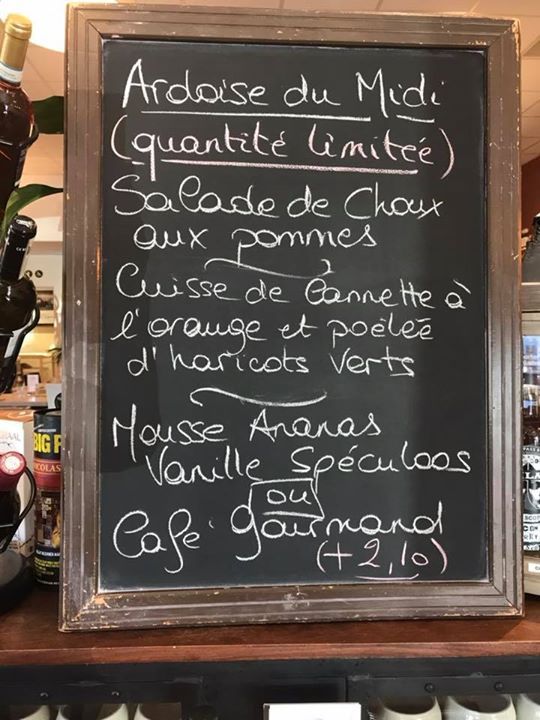 Ardoise du Midi
(quantité limitée)
Salade de Choux
aux pommes
Cuisse de Cannette à
l'orange et poêlée
d'haricots verts
Mousse Ananas
Vanille Spéculoos
ou
Café gourmand
(+2,10)
BIG P